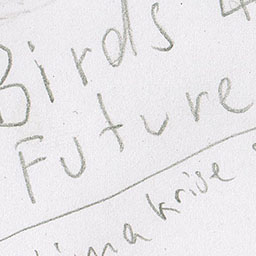 Birds 4
Future
klima krise